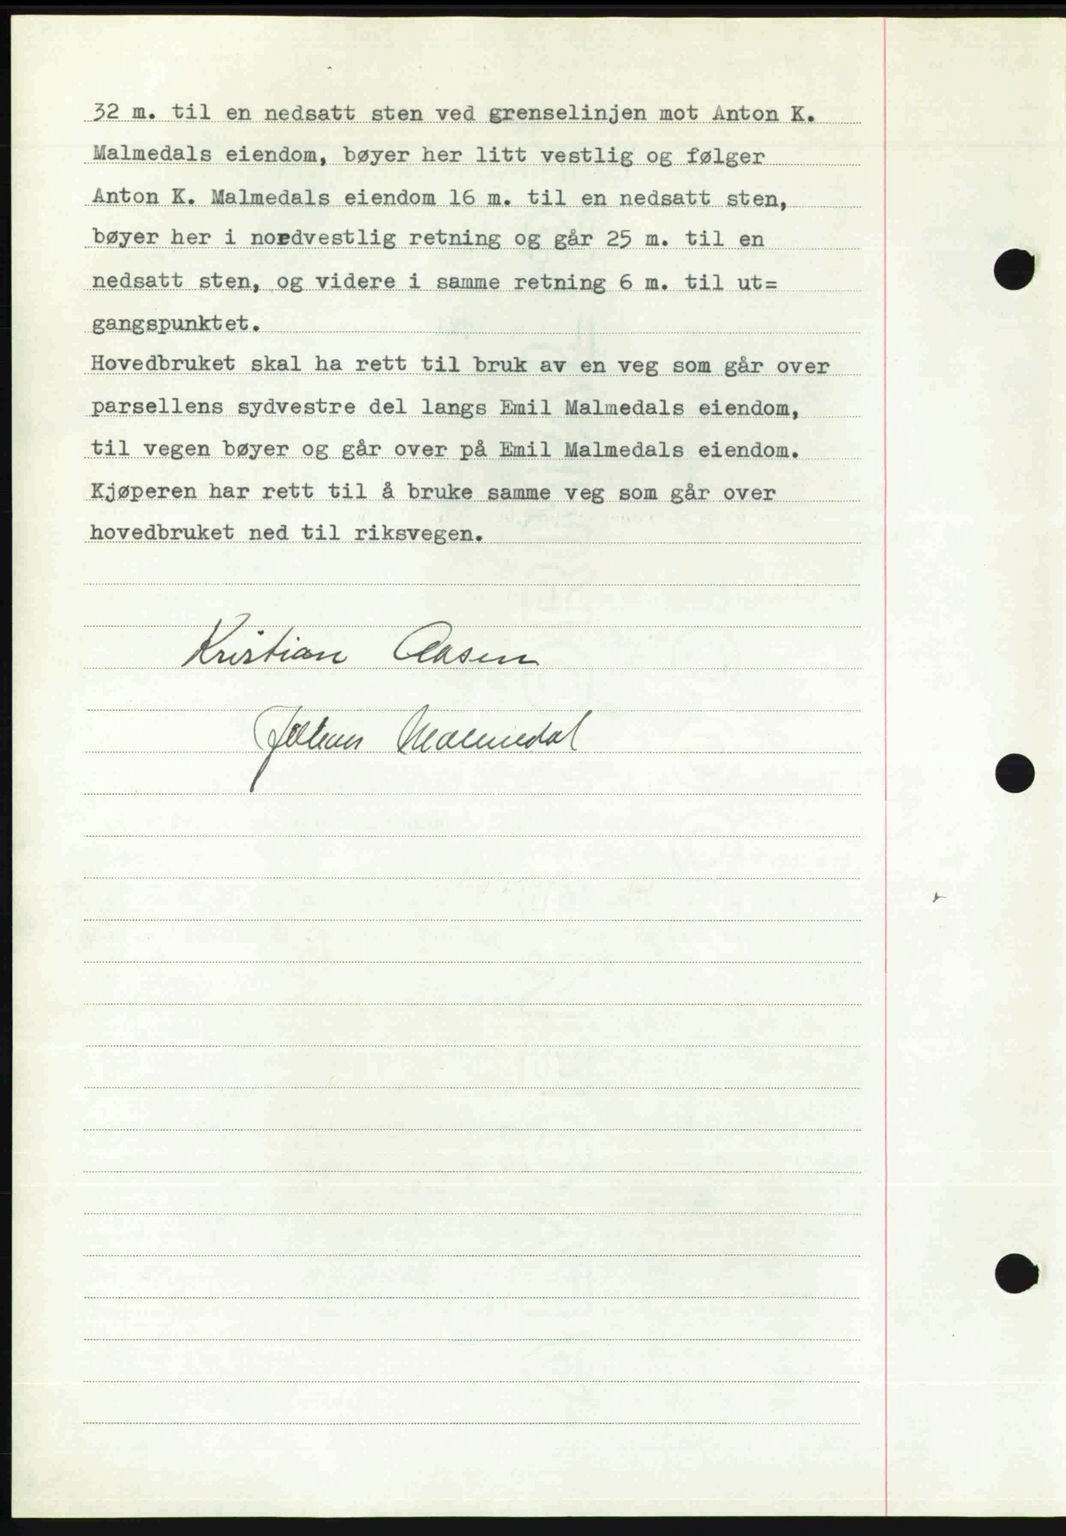 32 m. til en nedsatt sten ved grenselinjen mot Anton K.
Malmedals eiendom, bøyer her litt vestlig og følger
Anton K. Malmedals eiendom 16 m. til en nedsatt sten,
bøyer her i nordvestlig retning og går 25 m. til en
nedsatt sten, og videre i samme retning 6 m. til ut=
gangspunktet.
Hovedbruket skal ha rett til bruk av en veg som går over
parsellens sydvestre del langs Emil Malmedals eiendom,
til vegen bøyer og går over på Emil Malmedals eiendom.
Kjøperen har rett til å bruke samme veg som går over
hovedbruket ned til riksvegen.
Kristian Aasen
Johan Malmedal